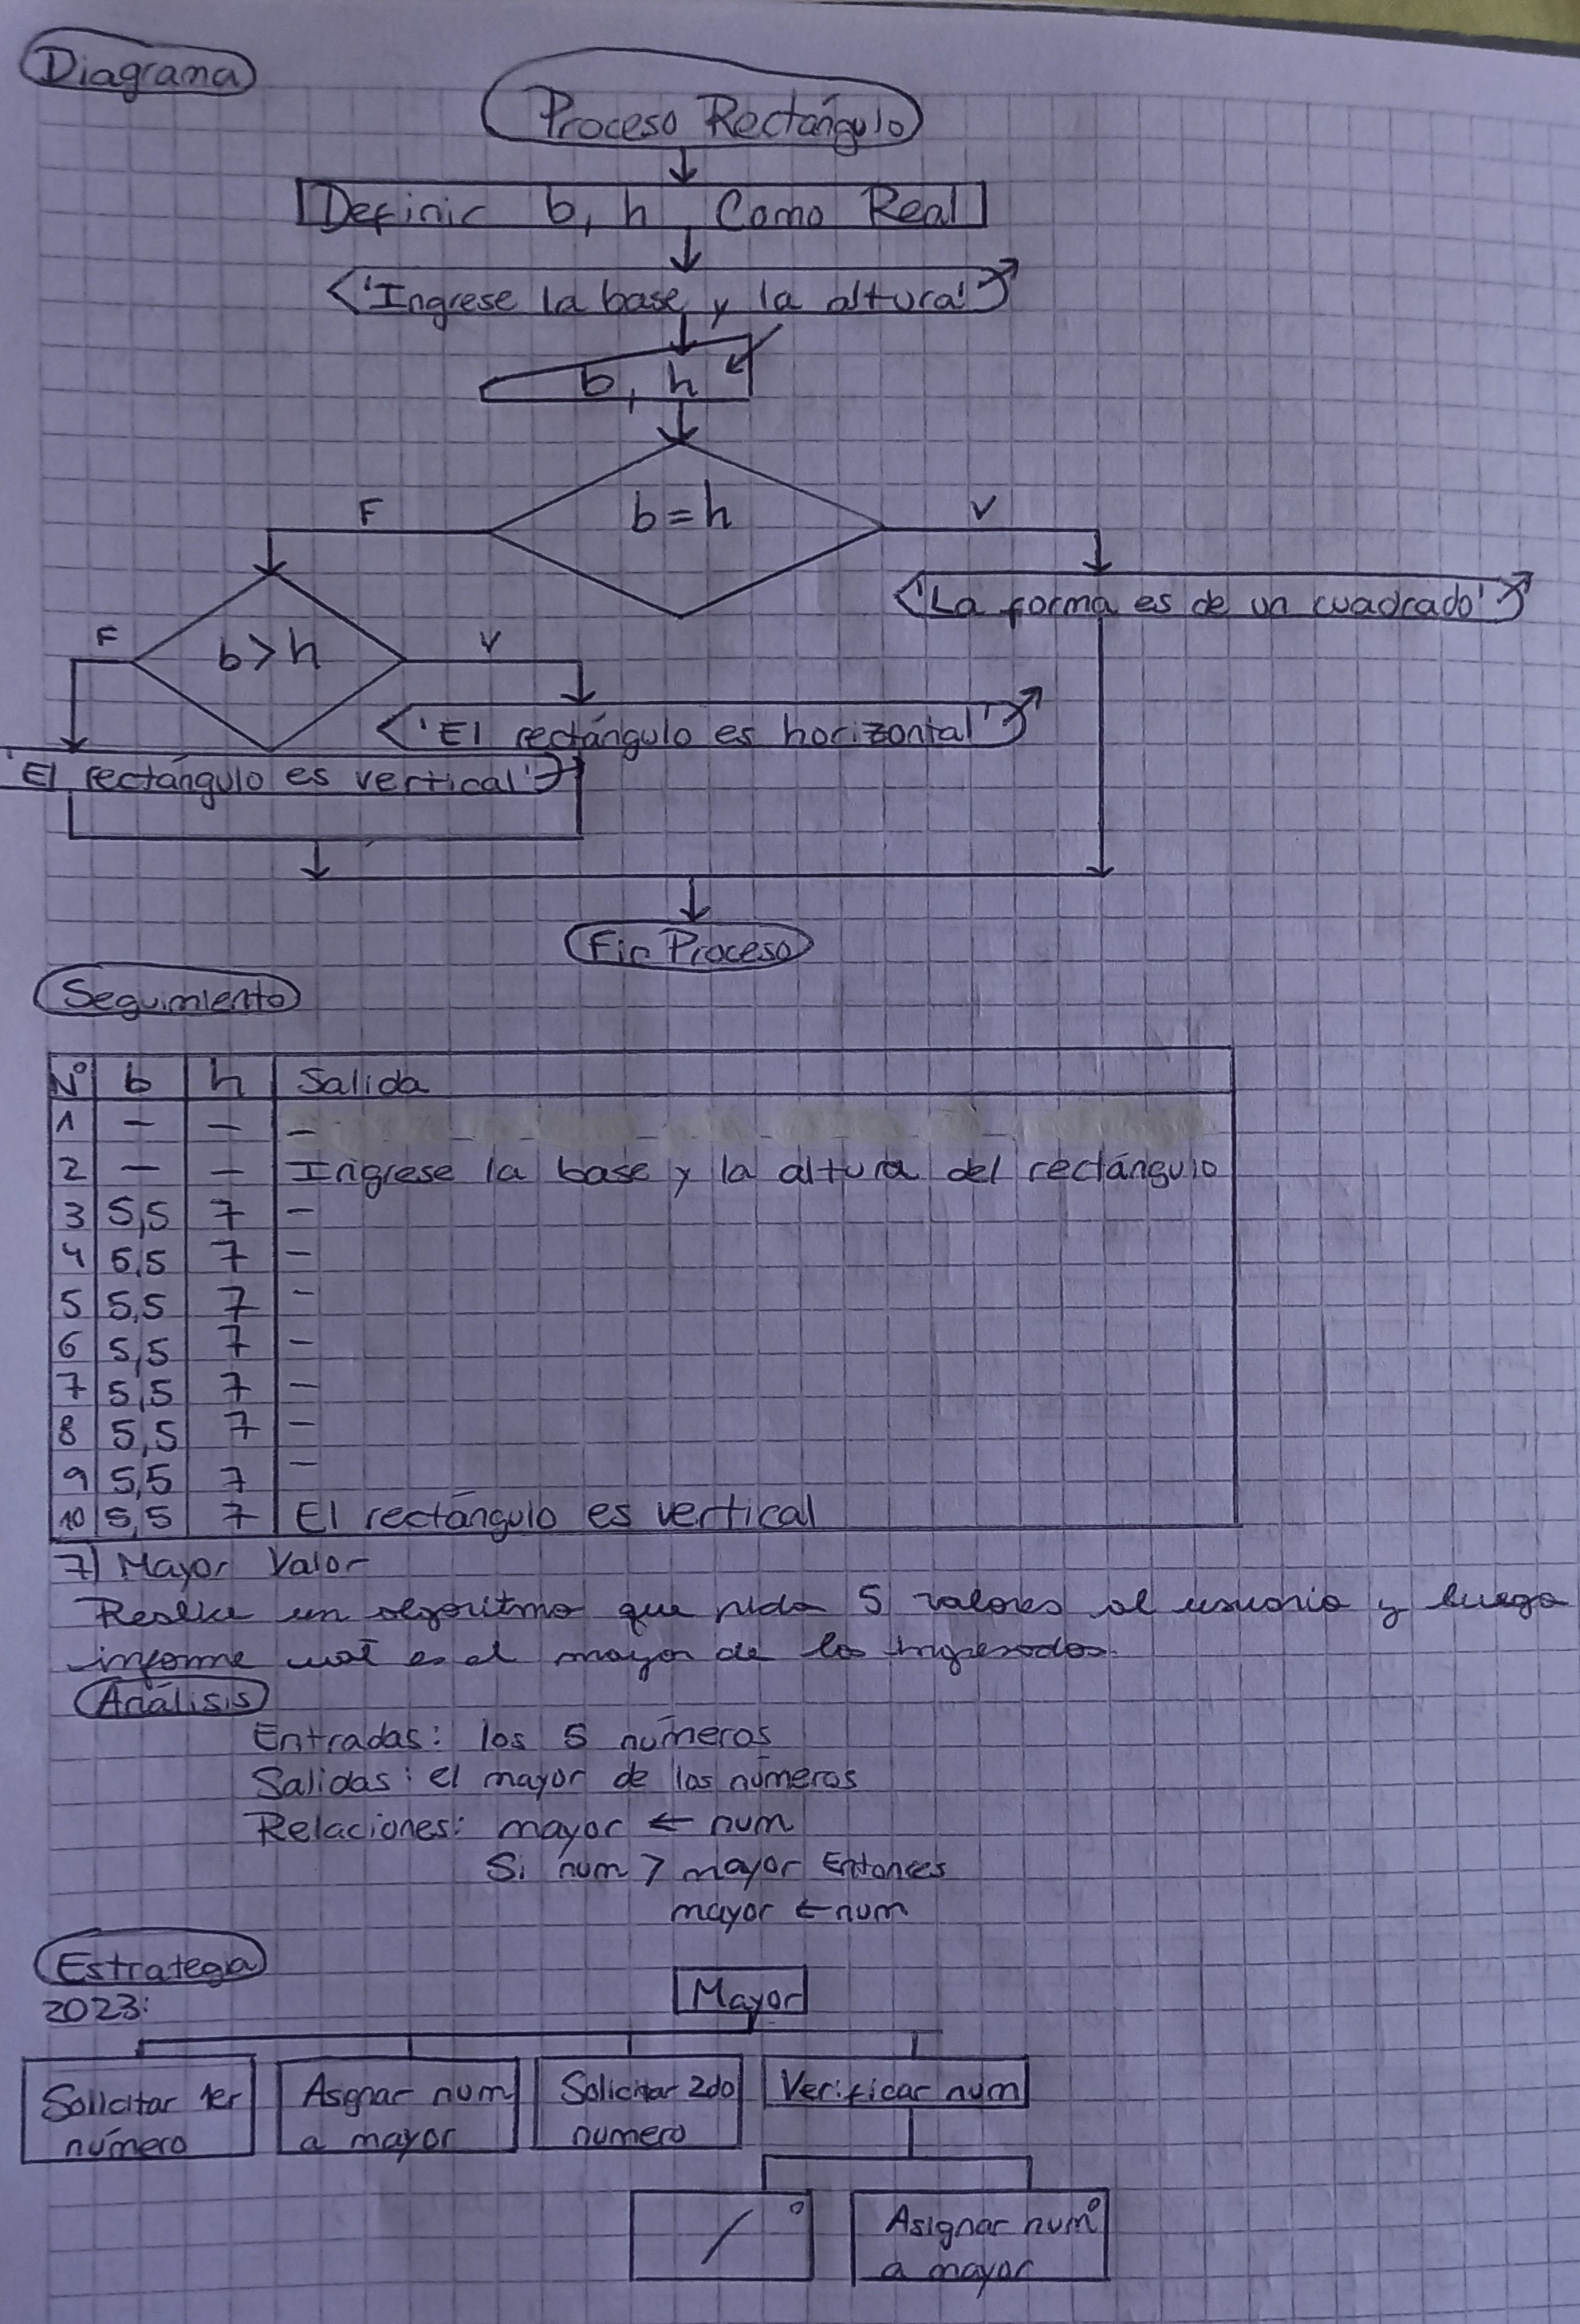 Diagrama
Proceso Rectángulo
Definir b, h Como Real
'Ingrese la base y la altura'
b, h
b = h
F
V
'La forma es de un cuadrado'
b > h
F
V
'El rectángulo es horizontal'
'El rectángulo es vertical'
Fin Proceso
Seguimiento
N° b h Salida
1 — — —
2 — — Ingrese la base y la altura del rectángulo
3 5,5 7 —
4 5,5 7 —
5 5,5 7 —
6 5,5 7 —
7 5,5 7 —
8 5,5 7 —
9 5,5 7 —
10 5,5 7 El rectángulo es vertical
7) Mayor Valor
Realice un algoritmo que pida 5 valores al usuario y luego
informe cuál es el mayor de los ingresados.
Análisis
Entradas: los 5 números
Salidas: el mayor de los números
Relaciones: mayor ← num
Si num > mayor Entonces
mayor ← num
Estrategia
2023:
Mayor
Solicitar 1er
número
Asignar num
a mayor
Solicitar 2do
numero
Verificar num
/ °
Asignar num °
a mayor